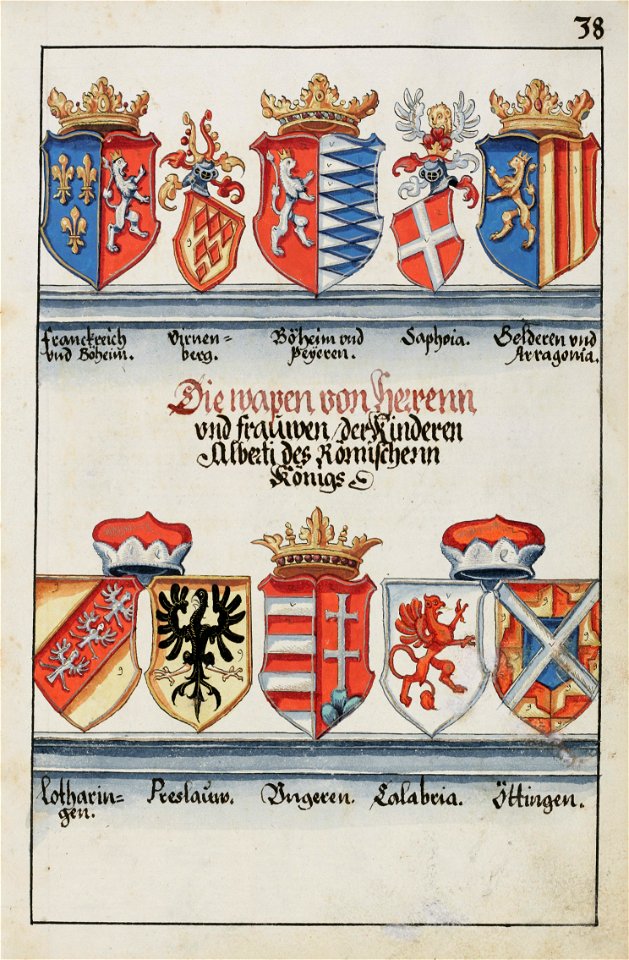 38
Franckreich
und Böheim.
Virnen=
berg.
Böheim und
Peyeren.
Saphoia.
Gelderen und
Arragonia.
Die wapen von Herrenn
und frauwen / der Kinderen
Alberti des Römischenn
Königs
Lotharin=
gen.
Preslauw.
Vngeren.
Calabria.
Öttingen.